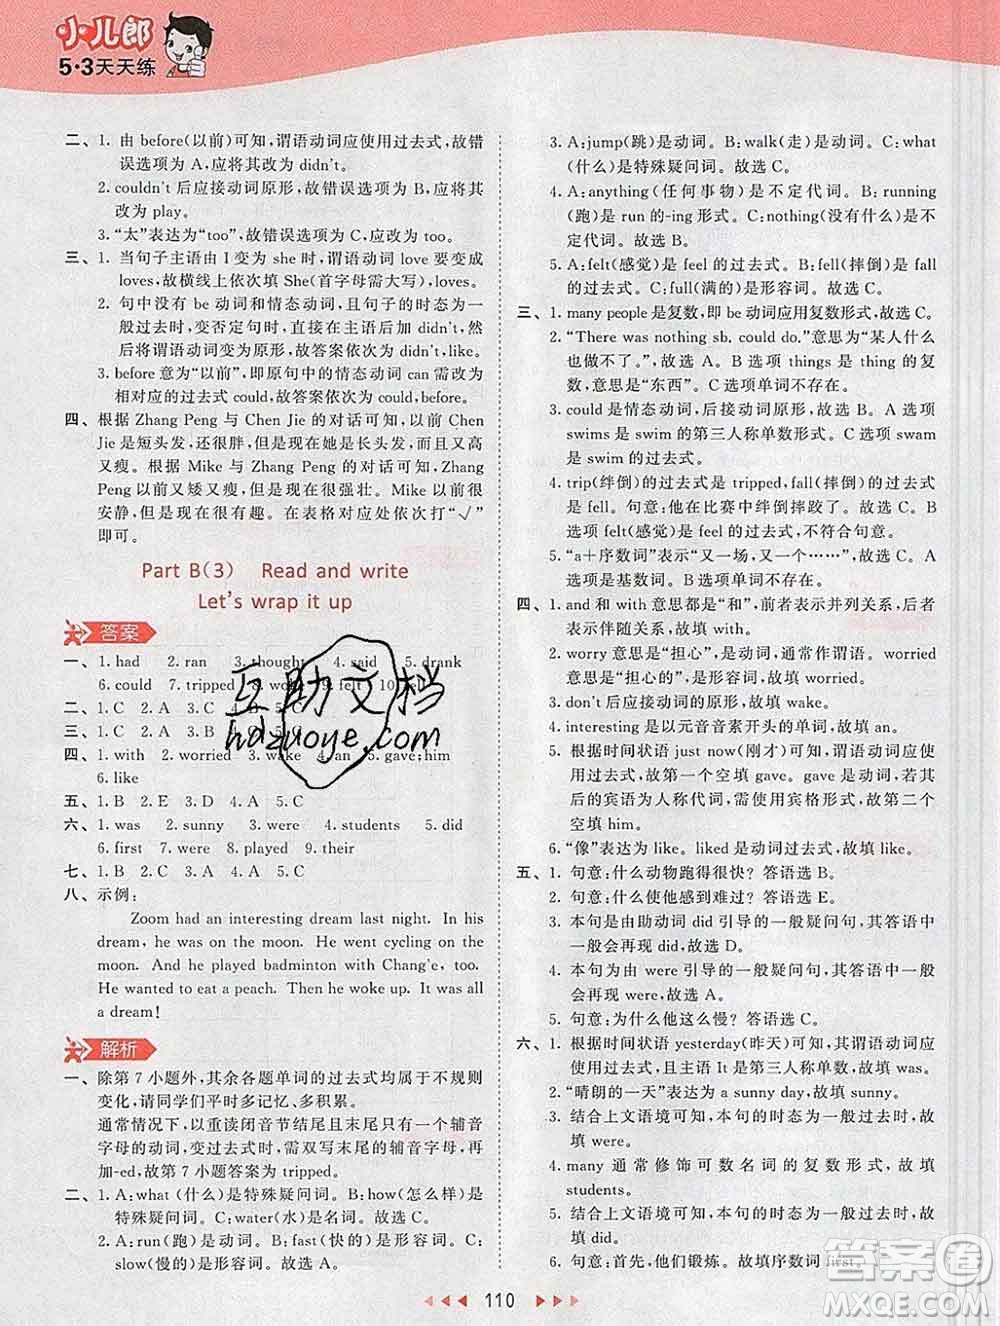 小儿郎
5·3天天练
二、1. 由 before(以前)可知,谓语动词应使用过去式,故错
误选项为 A,应将其改为 didn't。
2. couldn't 后应接动词原形,故错误选项为 B,应将其
改为 play。
3. “太”表达为“too”,故错误选项为 C,应改为 too。
三、1. 当句子主语由 I 变为 she 时,谓语动词 love 要变成
loves,故横线上依次填 She(首字母需大写),loves。
2. 句中没有 be 动词和情态动词,且句子的时态为一
般过去时,变否定句时,直接在主语后加 didn't,然
后将谓语动词变为原形,故答案依次为 didn't,like。
3. before 意为“以前”,即原句中的情态动词 can 需改为
相对应的过去式 could,故答案依次为 could,before。
四、根据 Zhang Peng 与 Chen Jie 的对话可知,以前 Chen
Jie 是短头发,还很胖,但是现在她是长头发,而且又高
又瘦。根据 Mike 与 Zhang Peng 的对话可知,Zhang
Peng 以前又矮又瘦,但是现在很强壮。Mike 以前很
安静,但是现在很有趣。在表格对应处依次打“√”
即可。
Part B(3) Read and write
Let's wrap it up
答案
一、1. had 2. ran 3. thought 4. said 5. drank
6. could 7. tripped 8. wo 9. felt 10.
二、1. C 2. A 3. C 4. B 5. C
三、1. C 2. A 3. B
四、1. with 2. worried 3. wake 4. an 5. gave;him
6. like
五、1. B 2. E 3. D 4. A 5. C
六、1. was 2. sunny 3. were 4. students 5. did
6. first 7. were 8. played 9. their
七、1. B 2. A 3. C 4. A 5. C
八、示例:
Zoom had an interesting dream last night. In his
dream, he was on the moon. He went cycling on the
moon. And he played badminton with Chang'e, too.
He wanted to eat a peach. Then he woke up. It was all
a dream!
解析
一、除第 7 小题外,其余各题单词的过去式均属于不规则
变化,请同学们平时多记忆、多积累。
通常情况下,以重读闭音节结尾且末尾只有一个辅音
字母的动词,变过去式时,需双写末尾的辅音字母,再
加-ed,故第 7 小题答案为 tripped。
二、1. A:what (什么)是特殊疑问词。B:how(怎么样)是
特殊疑问词。C:water(水)是名词。故选 C。
2. A:run(跑)是动词。B:fast(快的)是形容词。C:
slow(慢的)是形容词。故选 A。
3. A:jump(跳)是动词。B:walk(走)是动词。C:what
(什么)是特殊疑问词。故选 C。
4. A:anything(任何事物)是不定代词。B:running
(跑)是 run 的-ing 形式。C:nothing(没有什么)是不
定代词。故选 B。
5. A:felt(感觉)是 feel 的过去式。B:fell(摔倒)是 fall
的过去式。C:full(满的)是形容词。故选 C。
三、1. many people 是复数,即 be 动词应用复数形式,故选 C。
2. “There was nothing sb. could do.”意思为“某人什么
也做不了。”,故选 A。B 选项 things 是 thing 的复
数,意思是“东西”。C 选项单词不存在。
3. could 是情态动词,后接动词原形,故选 B。A 选项
swims 是 swim 的第三人称单数形式。C 选项 swam
是 swim 的过去式。
4. trip(绊倒)的过去式是 tripped,fall(摔倒)的过去式
是 fell。句意:他在比赛中绊倒摔跤了。故选 C。B
选项 felt(感觉)是 feel 的过去式,不符合句意。
5. “a+序数词”表示“又一场,又一个……”,故选 C。A
选项是基数词。B 选项单词不存在。
四、1. and 和 with 意思都是“和”,前者表示并列关系,后者
表示伴随关系,故填 with。
2. worry 意思是“担心”,是动词,通常作谓语。worried
意思是“担心的”,是形容词,故填 worried。
3. don't 后应接动词的原形,故填 wake。
4. interesting 是以元音音素开头的单词,故填 an。
5. 根据时间状语 just now(刚才)可知,谓语动词应使
用过去式,故第一个空填 gave。gave 是动词,其后
的宾语为人称代词时,应使用宾格形式,故第二个
空填 him。
6. “像”表达为 like。liked 是动词过去式,故填 like。
五、1. 句意:什么动物跑得很快?答语选 B。
2. 句意:什么使他感到难过?答语选 E。
3. 本句是由助动词 did 引导的一般疑问句,其答语中
一般会再现 did,故选 D。
4. 本句为由 were 引导的一般疑问句,其答语中一般
会再现 were,故选 A。
5. 句意:为什么他这么慢?答语选 C。
六、1. 根据时间状语 yesterday(昨天)可知,谓语动词应
使用过去式,且主语 It 是第三人称单数,故填 was。
2. “晴朗的一天”表达为 a sunny day,故填 sunny。
3. 结合上文语境可知,本句的时态为一般过去时,故
填 were。
4. many 通常修饰可数名词的复数形式,故填
students。
5. 结合上文语境可知,本句的时态为一般过去时,故
填 did。
6. 句意:首先,他们锻炼。故填序数词 first。
110
互助文档
hdzuoye.com
答案圈
MXQE.COM